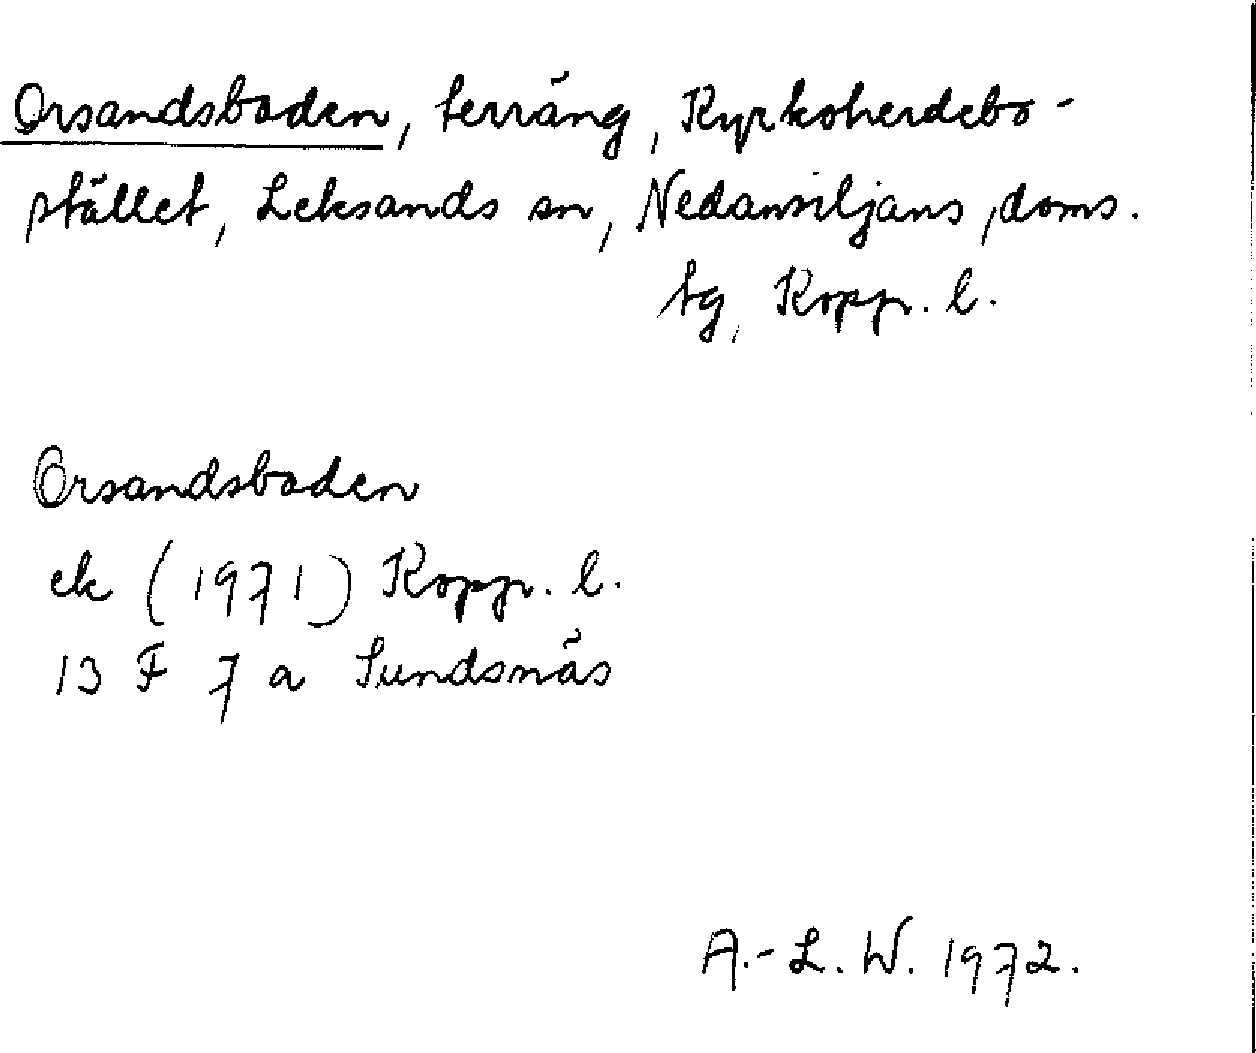 Orsandsbaden, terräng, Kyrkoherdebo-
stället, Leksands sn, Nedansiljans doms.
tg, Kopp. l.
Orsandsbaden
ek (1971) Kopp. l.
13 F 7 a Sundsnäs
A.-L. W. 1972.